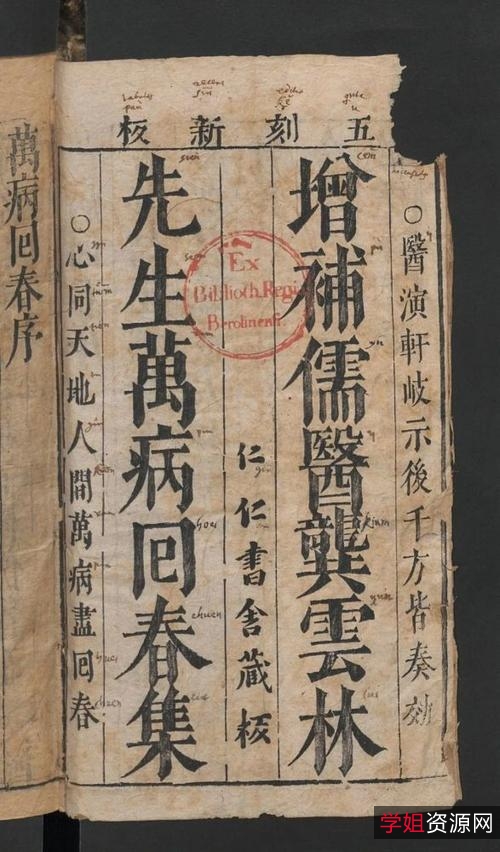 五刻新板
○醫演軒岐示後千方皆奏效
增補儒醫龔雲林
仁仁書舍藏板
先生萬病回春集
○心同天地人間萬病盡回春
萬病回春序
Ex
Biblioth. Regia
Berolinensi.
学姐资源网